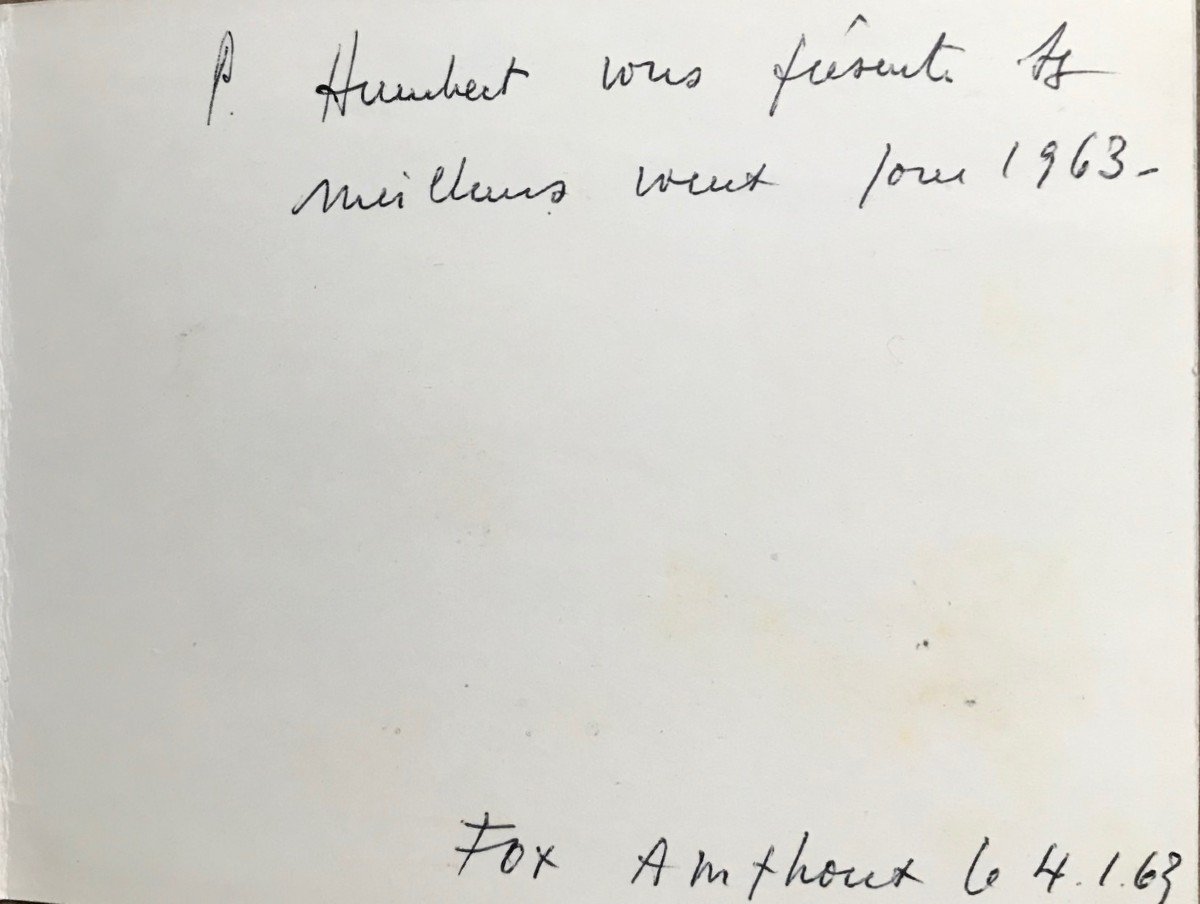 P. Humbert vous présente ses
meilleurs voeux pour 1963-
Fox Amphoux le 4.1.63